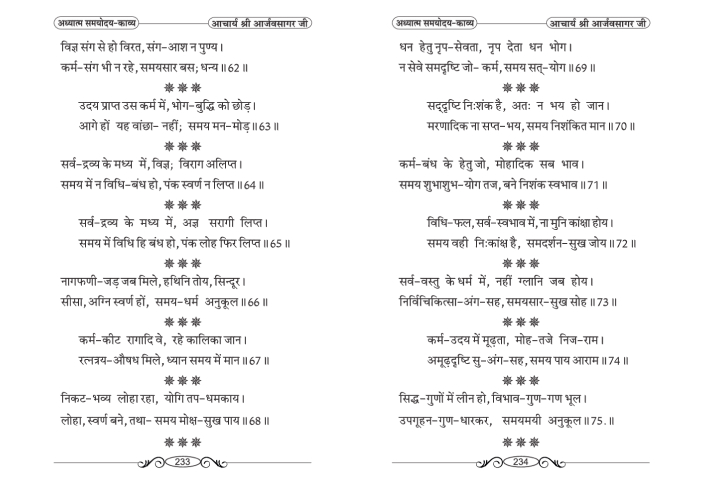 अध्यात्म समयोदय-काव्य
आचार्य श्री आर्जवसागर जी
विज्ञ संग से हो विरत, संग-आश न पुण्य।
कर्म-संग भी न रहे, समयसार बस; धन्य॥62॥
उदय प्राप्त उस कर्म में, भोग-बुद्धि को छोड़।
आगे हों यह वांछा- नहीं; समय मन-मोड़॥63॥
सर्व-द्रव्य के मध्य में, विज्ञ; विराग अलिप्त।
समय में न विधि-बंध हो, पंक स्वर्ण न लिप्त॥64॥
सर्व-द्रव्य के मध्य में, अज्ञ सरागी लिप्त।
समय में विधि हि बंध हो, पंक लोह फिर लिप्त॥65॥
नागफणी-जड़ जब मिले, हथिनि तोय, सिन्दूर।
सीसा, अग्नि स्वर्ण हों, समय-धर्म अनुकूल॥66॥
कर्म-कीट रागादि वे, रहे कालिका जान।
रत्नत्रय-औषध मिले, ध्यान समय में मान॥67॥
निकट-भव्य लोहा रहा, योगि तप-धमकाय।
लोहा, स्वर्ण बने, तथा- समय मोक्ष-सुख पाय॥68॥
233
अध्यात्म समयोदय-काव्य
आचार्य श्री आर्जवसागर जी
धन हेतु नृप-सेवता, नृप देता धन भोग।
न सेवे समदृष्टि जो- कर्म, समय सत्-योग॥69॥
सद्दृष्टि निःशंक है, अतः न भय हो जान।
मरणादिक ना सप्त-भय, समय निशंकित मान॥70॥
कर्म-बंध के हेतु जो, मोहादिक सब भाव।
समय शुभाशुभ-योग तज, बने निशंक स्वभाव॥71॥
विधि-फल, सर्व-स्वभाव में, ना मुनि कांक्षा होय।
समय वही निःकांक्ष है, समदर्शन-सुख जोय॥72॥
सर्व-वस्तु के धर्म में, नहीं ग्लानि जब होय।
निर्विचिकित्सा-अंग-सह, समयसार-सुख सोह॥73॥
कर्म-उदय में मूढ़ता, मोह-तजे निज-राम।
अमूढ़दृष्टि सु-अंग-सह, समय पाय आराम॥74॥
सिद्ध-गुणों में लीन हो, विभाव-गुण-गण भूल।
उपगूहन-गुण-धारकर, समयमयी अनुकूल॥75.॥
234